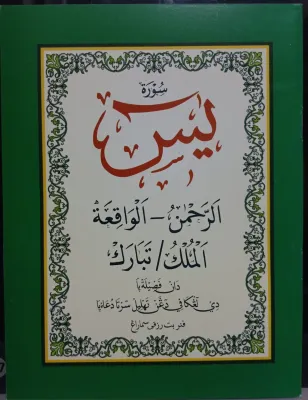 سُوْرَةُ
يٰسٓ
اَلرَّحْمٰنُ - اَلْوَاقِعَةُ
اَلْمُلْكُ / تَبَارَكَ
دان فضيلة٢ڽا
دي لڠكافي دڠن تهليل سرتا دعاءڽا